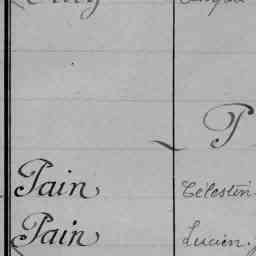 P
Pain Célestin
Pain Lucien